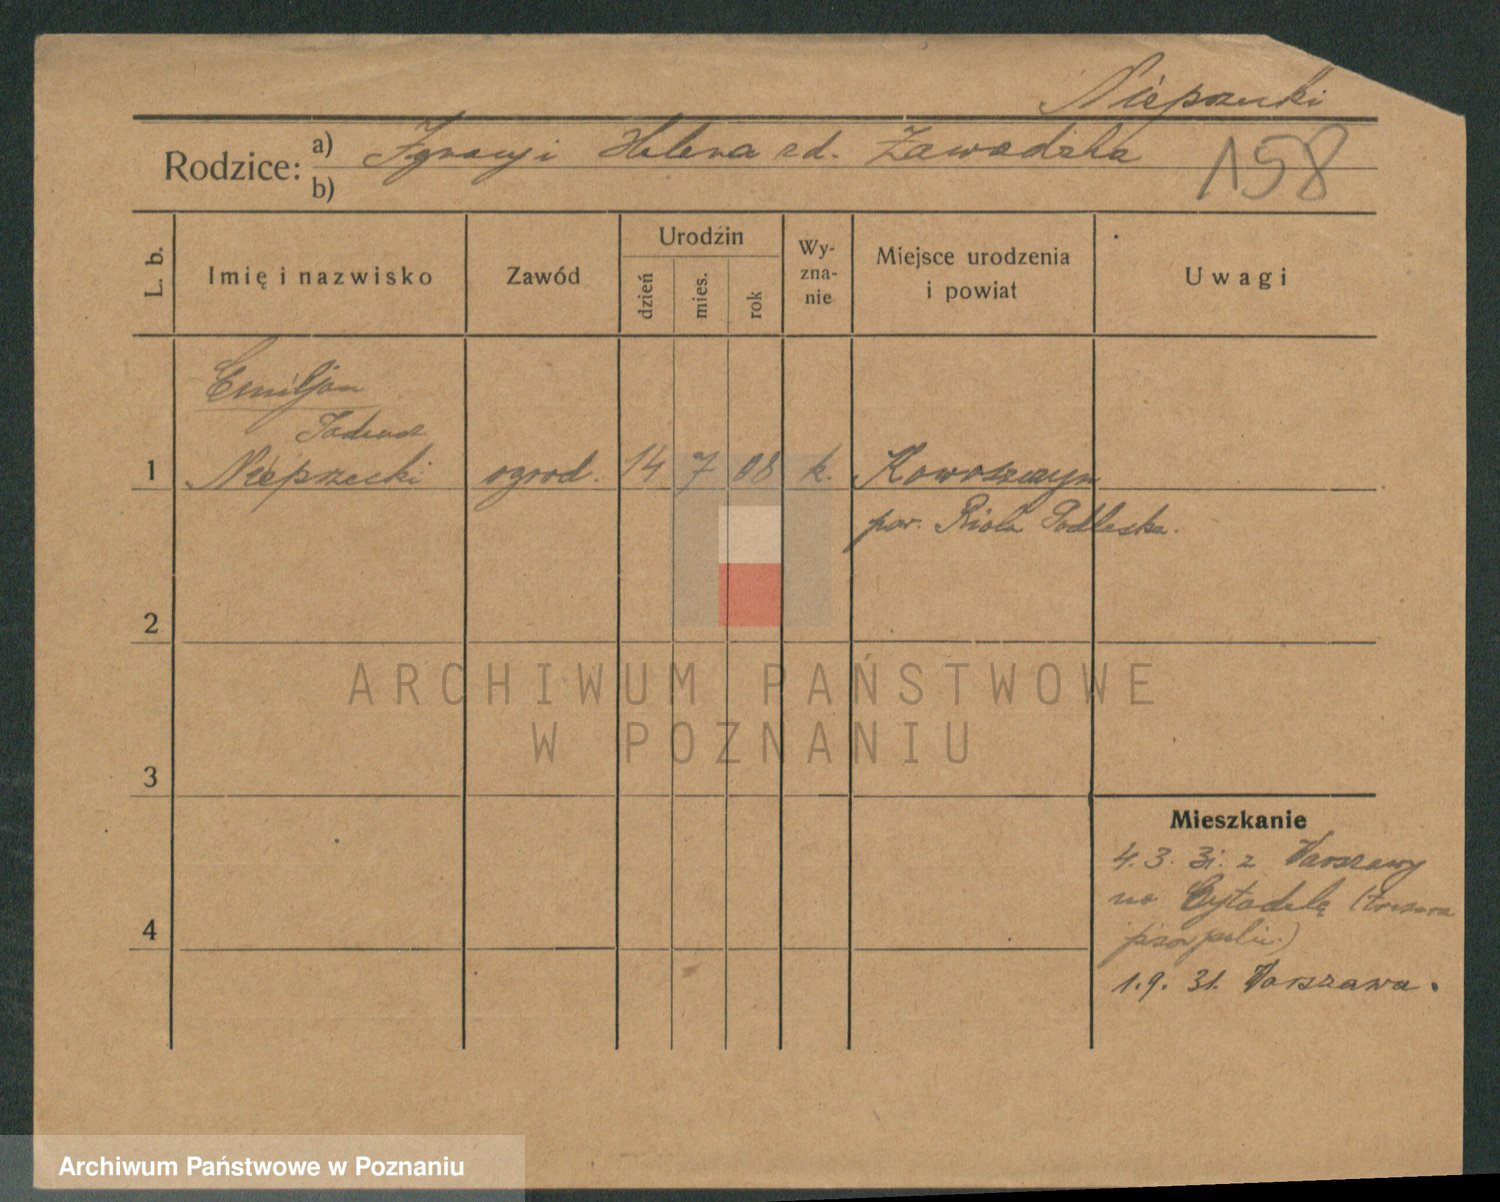 Nieprzecki
158
Rodzice: a) Ignacy i Helena zd. Zawadzka
b)
L. b.
Imię i nazwisko
Zawód
Urodzin
dzień
mies.
rok
Wy-
zna-
nie
Miejsce urodzenia
i powiat
Uwagi
Emiljan
Tadeusz
1 Nieprzecki ogrod. 14 7 08 k.
par. Podleska.
2
3
4
Mieszkanie
4.3.31. z Warszawy
na Cytadelę
1.9.31. Warszawa.
ARCHIWUM PAŃSTWOWE
W POZNANIU
Archiwum Państwowe w Poznaniu